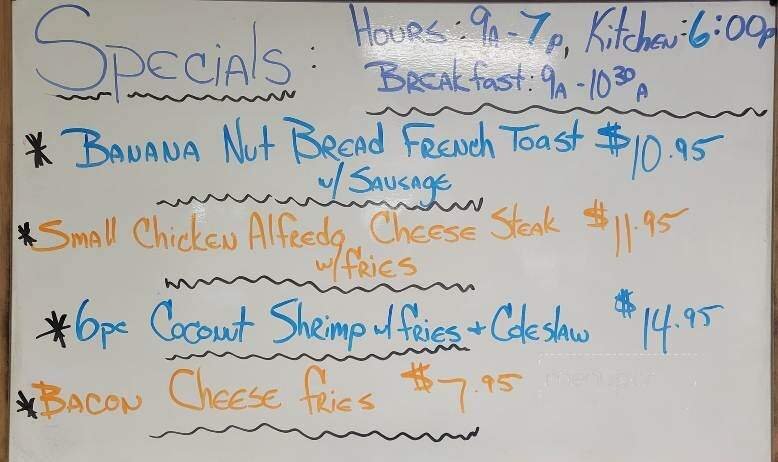 Specials: Hours: 9A-7p, Kitchen: 6:00p
Breakfast: 9A-10 30 A
* Banana Nut Bread French Toast $10.95
w/ Sausage
* Small Chicken Alfredo Cheese Steak $11.95
w/ fries
* 6pc Coconut Shrimp w/ fries + Coleslaw $14.95
* Bacon Cheese fries $7.95